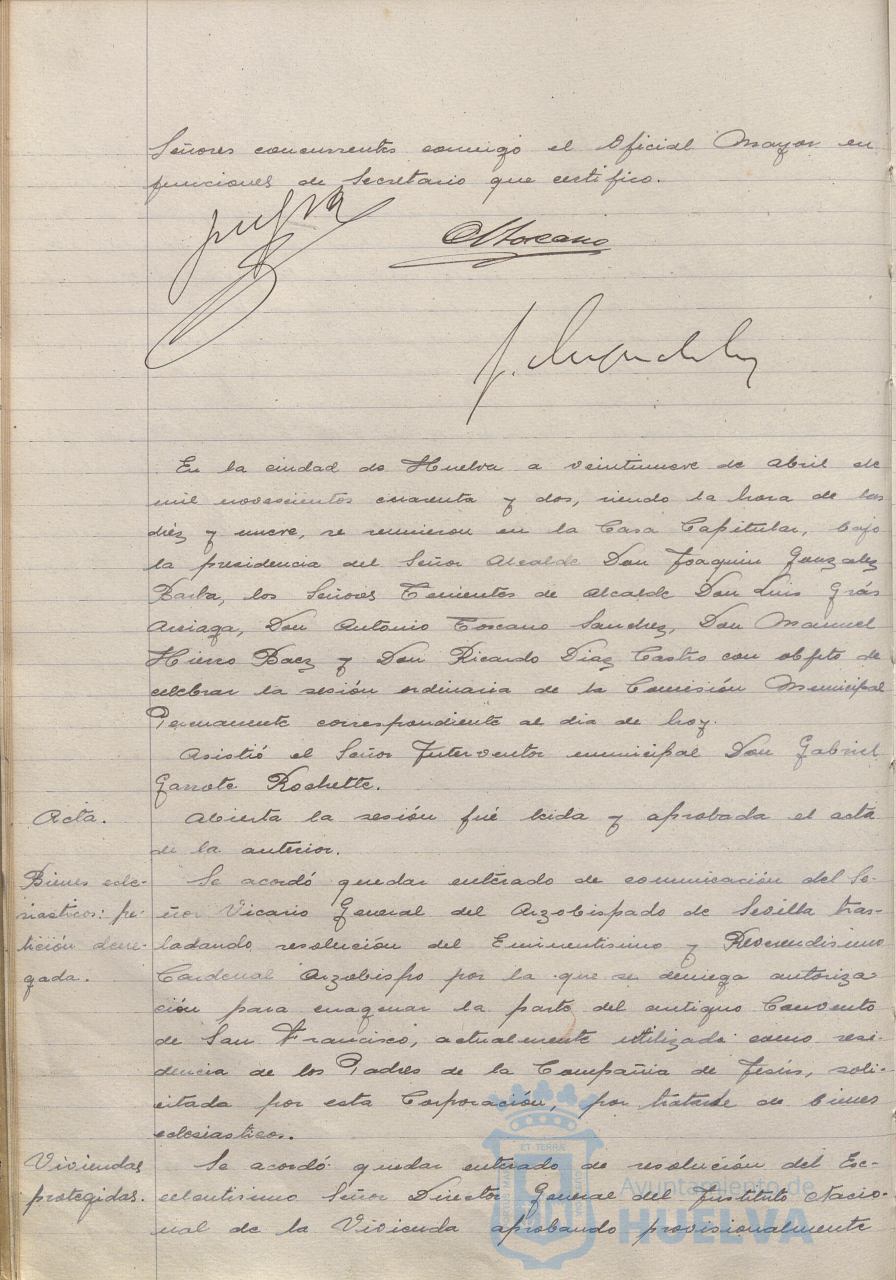 Señores concurrentes conmigo el Oficial Mayor en
funciones de Secretario que certifico.
En la ciudad de Huelva a veintinueve de Abril de
mil novecientos cuarenta y dos, siendo la hora de las
diez y nueve, se reunieron en la Casa Capitular, bajo
la presidencia del Señor Alcalde Don Joaquin Gonzalez
Barba, los Señores Tenientes de Alcalde Don Luis Gras
Arriaga, Don Antonio Toscano Sanchez, Don Manuel
Hierro Baez y Don Ricardo Diaz Castro con objeto de
celebrar la sesión ordinaria de la Comisión Municipal
Permanente correspondiente al dia de hoy.
Asistió el Señor Interventor municipal Don Gabriel
Garrote Rochette.
Acta.
Abierta la sesión fué leida y aprobada el acta
de la anterior.
Bienes ecle-
siasticos: pe-
tición dene-
gada.
Se acordó quedar enterado de comunicación del Se-
ñor Vicario General del Arzobispado de Sevilla tras-
ladando resolución del Eminentisimo y Reverendisimo
Cardenal Arzobispo por la que se deniega autoriza-
ción para enagenar la parte del antiguo Convento
de San Francisco, actualmente utilizada como resi-
dencia de los Padres de la Compañia de Jesús, soli-
citada por esta Corporación, por tratarse de bienes
eclesiasticos.
Viviendas
protegidas.
Se acordó quedar enterado de resolución del Exc-
celentisimo Señor Director General del Instituto Nacio-
nal de la Vivienda aprobando provisionalmente
Ayuntamiento de
HUELVA